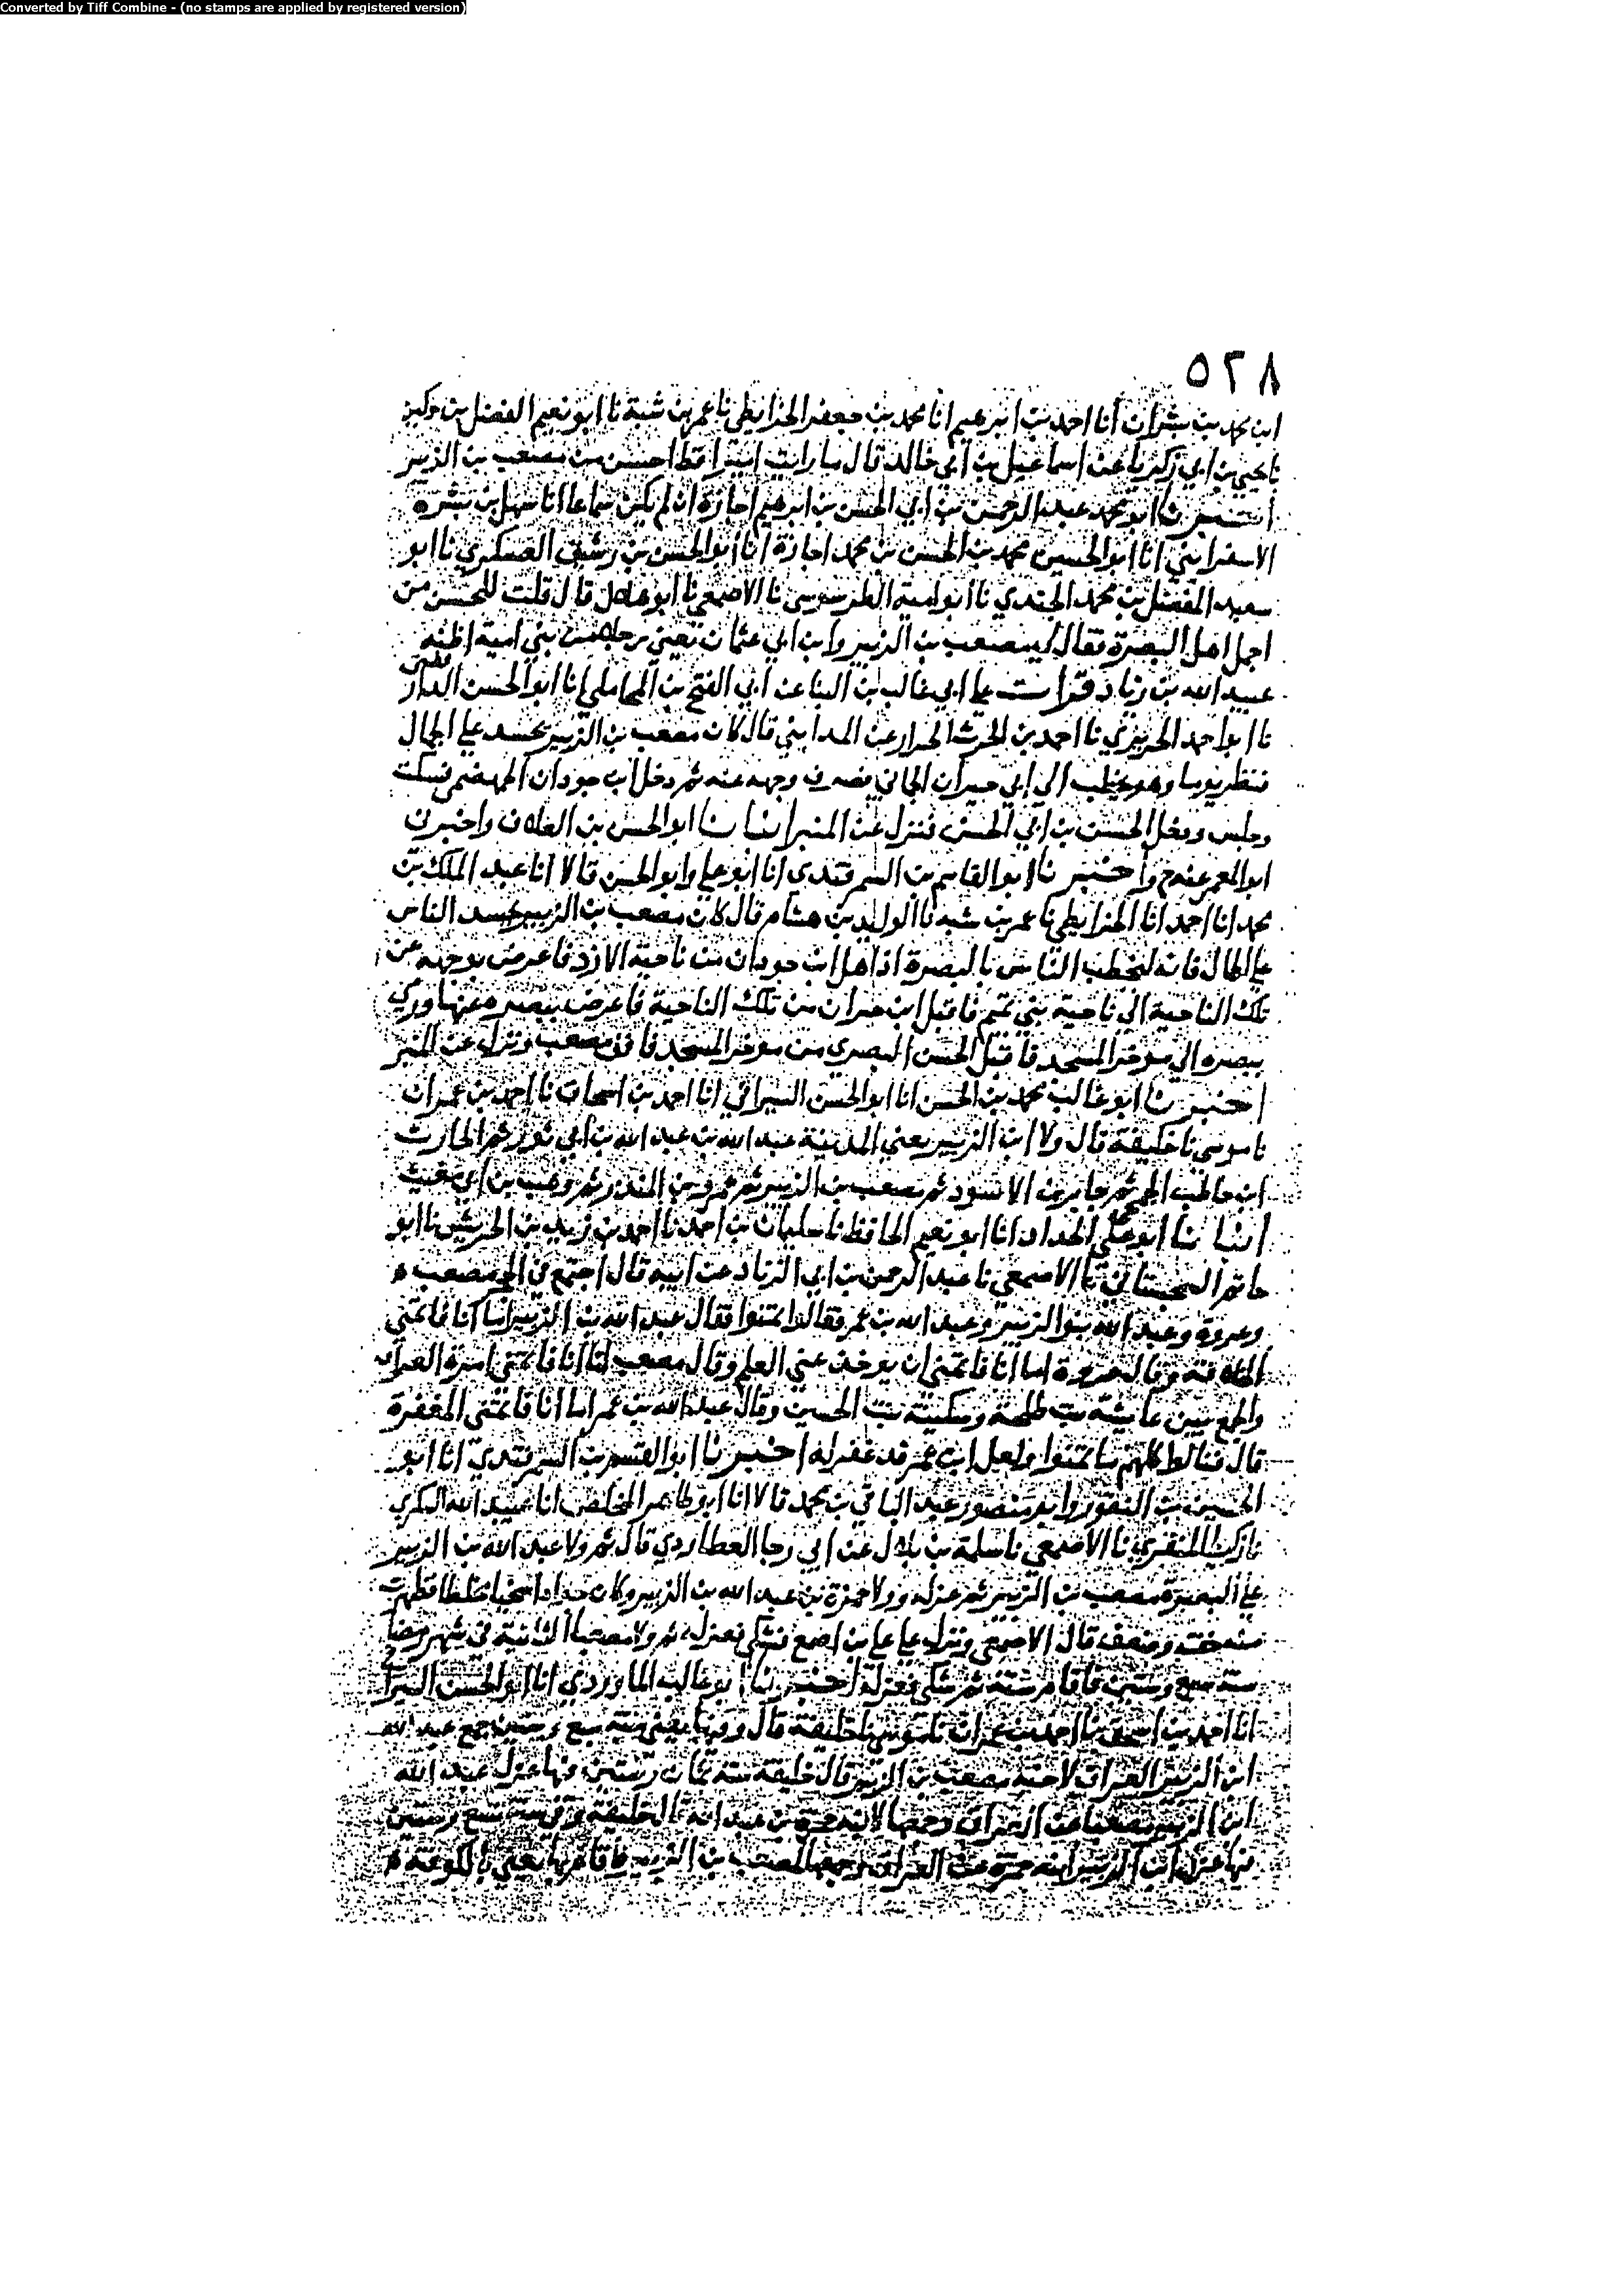 Converted by Tiff Combine - (no stamps are applied by registered version)
٥٢٨
ابن محمد بن بشران أنا احمد بن ابرهيم انا محمد بن جعفر الخرايطي نا عمر بن شبة نا ابو نعيم الفضل بن دكين
نا يحيى بن ابي زكريا عن اسماعيل بن ابي خالد قال ما رايت اميرا قط احسن من مصعب بن الزبير
اخبرنا ابو محمد عبد الرحمن بن ابي الحسن بن ابرهيم اجازة ان لم يكن سماعا انا سهل بن بشر
الاسفرايني انا ابو الحسين محمد بن الحسن بن محمد اجازة انا ابو الحسن بن رشيق العسكري نا ابو
سعيد المفضل بن محمد الجندي نا ابو امية الطرسوسي نا الاصمعي نا ابو هلال قال قلت للحسن من
اجمل اهل البصرة فقال مصعب بن الزبير وابن ابي عثمان تعني رجلا من بني امية اظنه
عبيد الله بن زياد قرات على ابي غالب بن البنا عن ابي الفتح بن المحاملي انا ابو الحسن الدارقطني
نا ابو احمد الجريري نا احمد بن الحرث الخراز عن المدايني قال كان مصعب بن الزبير يحسد على الجمال
فنظر يوما وهو يخطب الى ابي الحماني فصرف وجهه عنه ثم دخل ابن جودان الجهضمي فسكت
وجلس ودخل الحسن بن ابي الحسن فنزل عن المنبر انبانا ابو الحسن بن العلاف واخبرني
ابو المعمر عنه ح واخبرنا ابو القاسم بن السمرقندي انا ابو علي وابو الحسن قالا انا عبد الملك بن
محمد انا احمد انا الخرايطي نا عمر بن شبه نا الوليد بن هشام قال كان مصعب بن الزبير يحسد الناس
على الجمال فانه ليخطب الناس بالبصرة اذ اهل ابن جودان من ناحية الازد فاعرض بوجهه عن
تلك الناحية الى ناحية بني تميم فاقبل ابن حمران من تلك الناحية فاعرض ببصره عنها ورمى
ببصره الى موخر المسجد فاقبل الحسن البصري من موخر المسجد مصعب ونزل عن المنبر
اخبرنا ابو غالب محمد بن الحسن انا ابو الحسن السيرافي انا احمد بن اسحاق نا احمد بن عمران
نا موسى نا خليفة قال ولا ابن الزبير يعني المدينة عبد الله بن عبد الله بن ابي ثور ثم الحارث
ابن حاطب الجمحي ثم جابر بن الاسود ثم مصعب بن الزبير ثم عمرو بن المنذر ثم وهب بن ابي مغيث
انبانا ابو علي الحداد انا ابو نعيم الحافظ نا سليمان بن احمد نا احمد بن زيد بن الحريش نا ابو
حاتم السجستاني نا الاصمعي نا عبد الرحمن بن ابي الزناد عن ابيه قال اجتمع في الحجر مصعب
وعروة وعبد الله بنو الزبير وعبد الله بن عمر فقالوا تمنوا فقال عبد الله بن الزبير اما انا فاتمنى
الخلافة وقال عروة اما انا فاتمنى ان يوخذ عني العلم وقال مصعب اما انا فاتمنى امرة العراق
والجمع بين عايشة بنت طلحة وسكينة بنت الحسين وقال عبد الله بن عمر اما انا فاتمنى المغفرة
قال فنالوا كلهم ما تمنوا ولعل ابن عمر قد غفر له اخبرنا ابو القسم بن السمرقندي انا ابو
الحسين بن النقور وابو منصور عبد الباقي بن محمد قالا انا ابو طاهر المخلص انا عبيد الله السكري
نا زكريا المنقري نا الاصمعي نا سلمة بن بلال عن ابي رجا العطاردي قال ثم ولا عبد الله بن الزبير
على البصرة مصعب بن الزبير ثم عزله وولا حمزة بن عبد الله بن الزبير وكان جوادا سخيا مخلطا فظهرت
منه خفة وضعف قال الاصمعي فشكي فعزله ثم ولا مصعبا الثانية في شهر رمضان
سنة سبع وستين فاقام سنة ثم شكي فعزله اخبرنا ابو غالب الماوردي انا ابو الحسن السيرافي
انا احمد بن اسحق نا احمد بن عمران نا موسى نا خليفة قال وفيها يعني سنة سبع وستين جمع عبد الله
ابن الزبير العراق لاخيه مصعب بن الزبير قال خليفة سنة ثمان وستين فيها عزل عبد الله
ابن الزبير مصعبا عن العراق وجمعها لابنه حمزة بن عبد الله قال خليفة وفي سنة تسع وستين
فيها عزل ابن الزبير ابنه حمزة عن العراق وجمعها لمصعب بن الزبير فاقام بها يعني بالكوفة